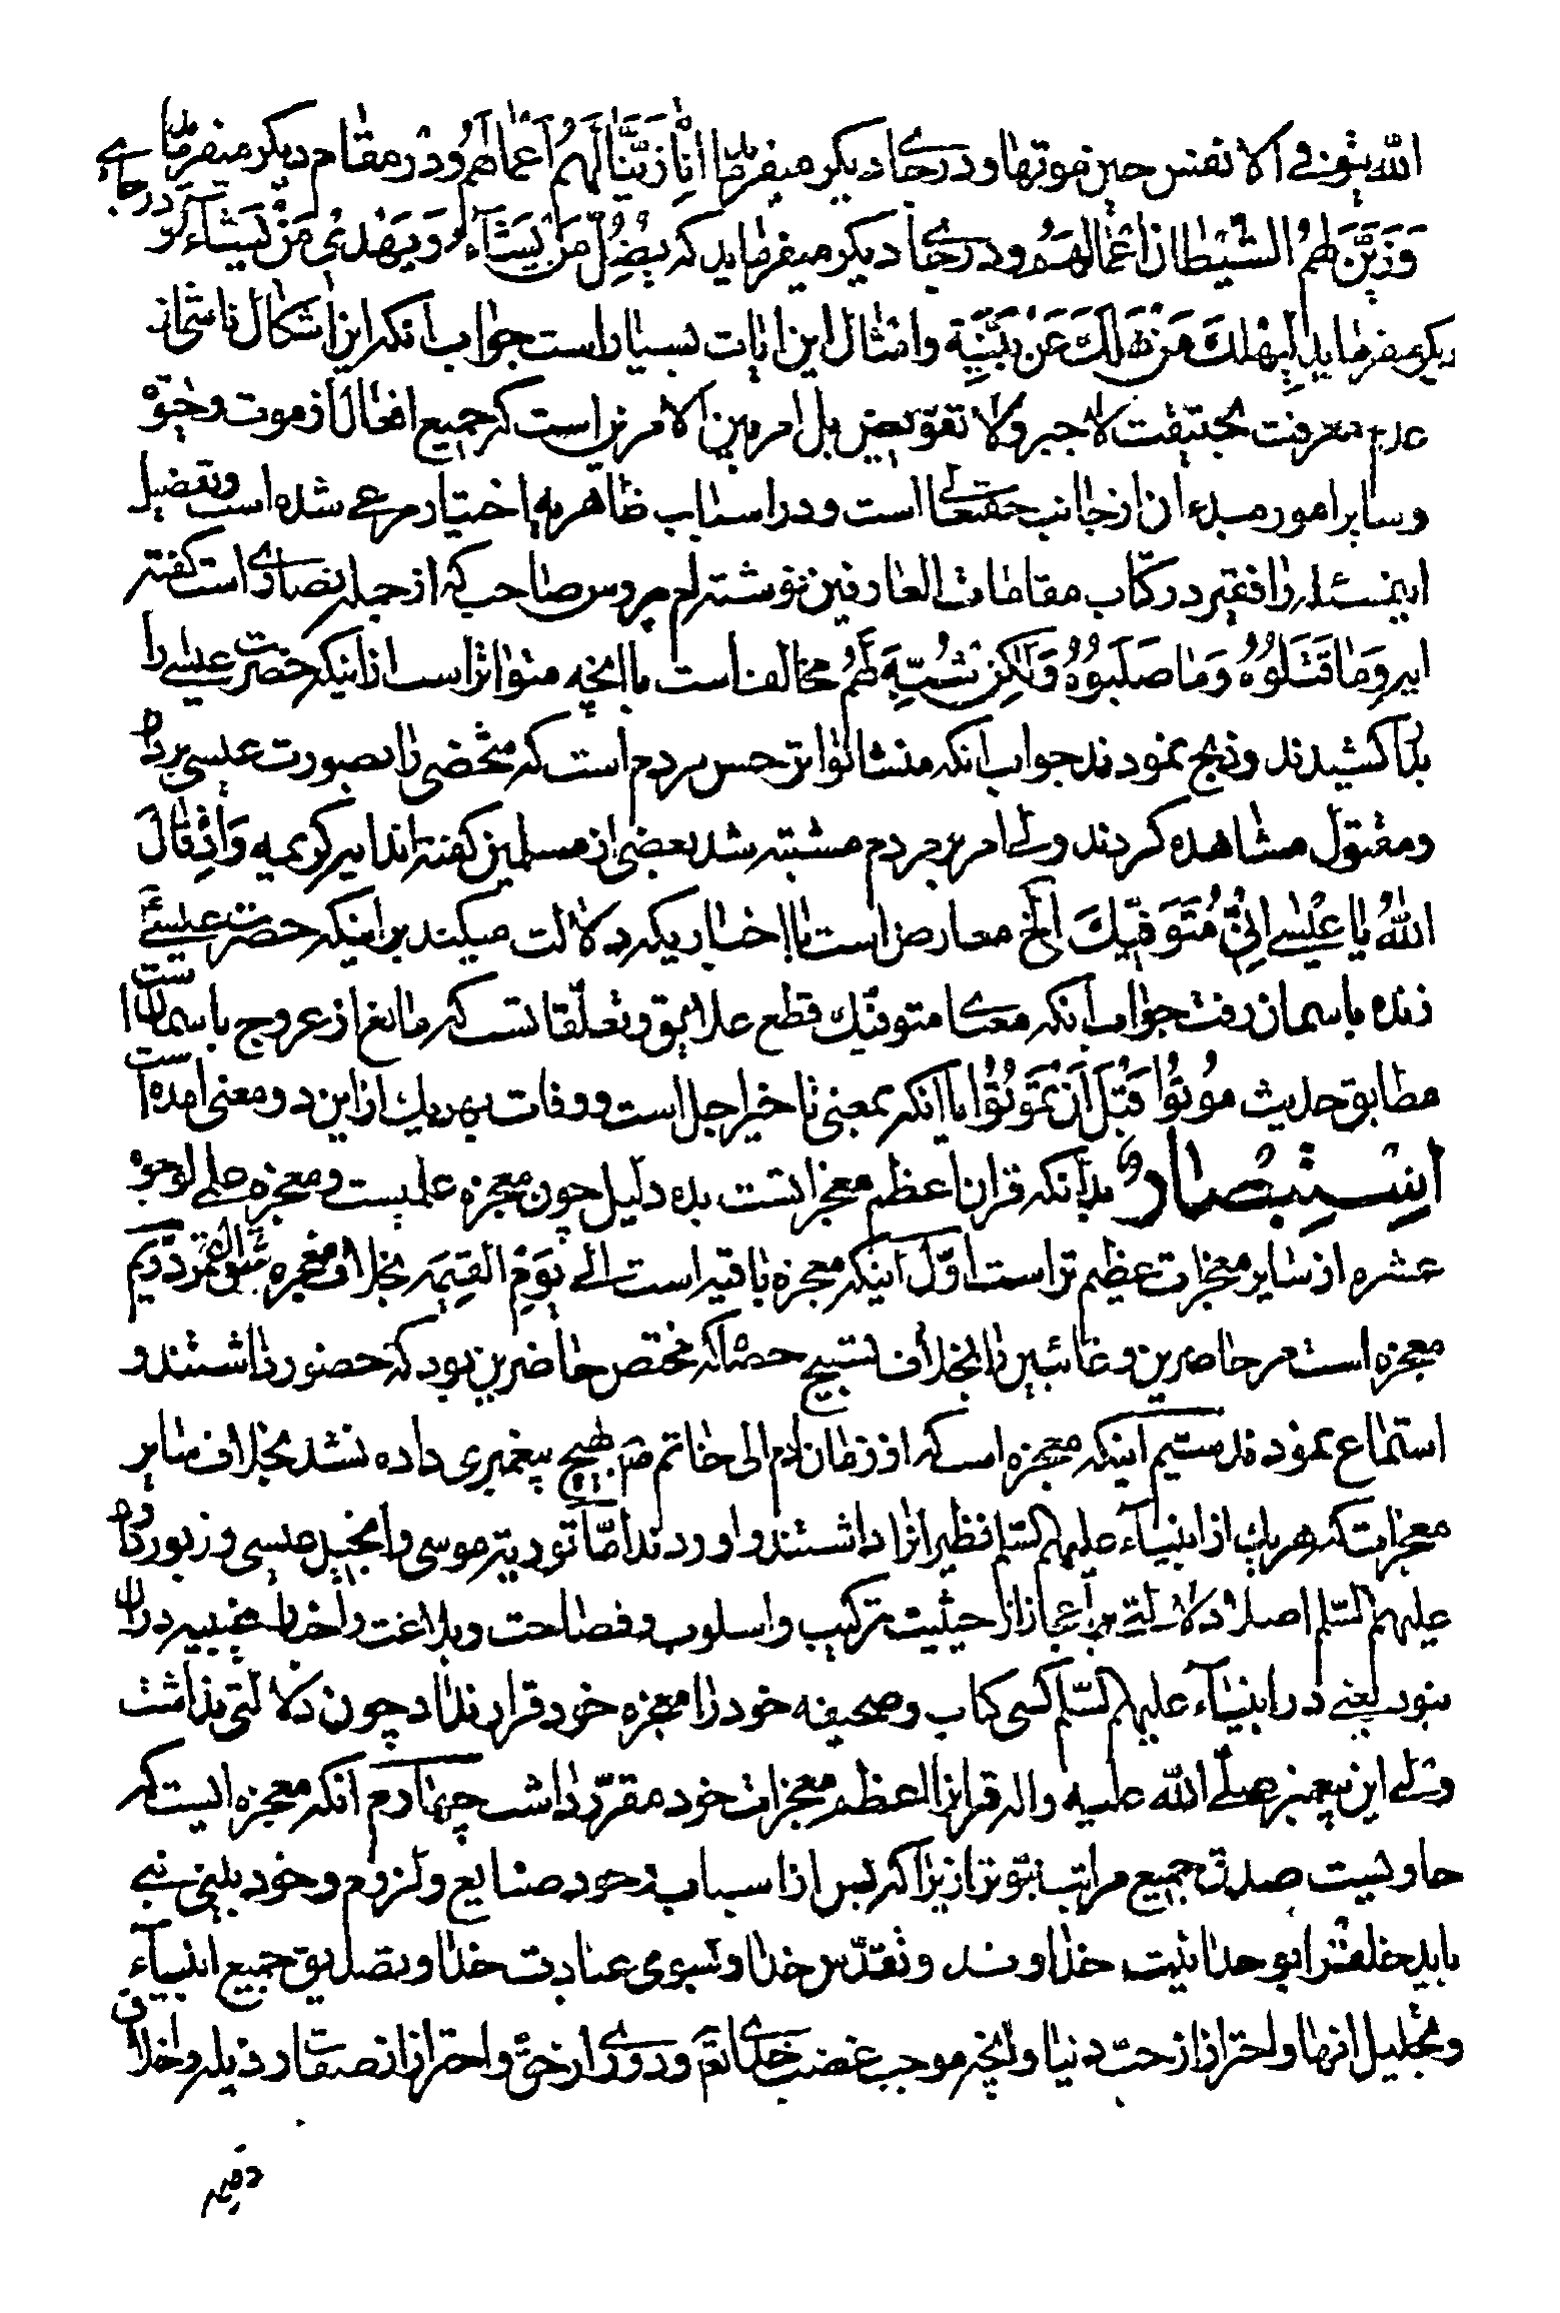 الله یتوفی الانفس حین موتها و در جای دیگر میفرماید انا زَیَّنّا لَهُم اَعْمالَهُم و در مقام دیگر میفرماید
وَ زَیَّنَ لَهُمُ الشَّیْطانُ اَعْمالَهُم و در جای دیگر میفرماید که یُضِلُّ مَنْ یَشآءُ وَ یَهْدی مَنْ یَشآءُ و در جای
دیگر میفرماید لِیَهْلِكَ مَنْ هَلَكَ عَنْ بَیِّنَةٍ و امثال این ایات بسیار است جواب انکه این اشکال ناشی از
عدم معرفت بحقیقت لا جبر ولا تفویض بل امر بین الامرین است که جمیع افعال از موت و حیوة
و سایر امور مبدء ان از جانب حقتعالی است و در اسباب ظاهریه اختیار مرعی شده است و تفصیل
اینمسئله را فقیر در کتاب مقامات العارفین نوشته‌ام مروس صاحب که از جمله نصاری است گفته
ایه وَ ما قَتَلُوهُ وَ ما صَلَبُوهُ وَلٰکِن شُبِّهَ لَهُمْ مخالف است با انچه متواتر است از اینکه حضرت عیسی را
بدار کشیدند و ذبح نمودند جواب انکه منشا تواتر حس مردم است که شخصی را بصورت عیسی بر دار
و مقتول مشاهده کردند ولی امر بر مردم مشتبه شد بعضی از مسلمین گفته اند ایه کریمه وَ اِذْ قالَ
اللهُ یا عیْسی اِنّی مُتَوَفّیكَ الخ معارض است با اخباریکه دلالت میکند بر اینکه حضرت عیسی
زنده باسمان رفت جواب انکه معنی متوفیك قطع علایق و تعلّقاتست که مانع از عروج باسمان است
مطابق حدیث مُوتُوا قَبْلَ اَنْ تَمُوتُوا یا انکه بمعنی تاخیر اجل است و وفات بهر یك از این دو معنی امده است
اِسْتِبْصار بدانکه قران اعظم معجزاتست بده دلیل چون معجزه علمیست و معجزه علمی لوجوه
عشره از سایر معجزات عظیم تر است اوّل اینکه معجزه باقیه است الی یَوْمِ القِیمَه بخلاف معجزه شق القمر دویّم
معجزه است مر حاضرین و غائبین را بخلاف تسبیح حصاکه مختص حاضرین بود که حضور داشتند و
استماع نمودند سیم اینکه معجزه است که از زمان ادم الی خاتم ص بهیچ پیغمبری داده نشد بخلاف سایر
معجزات که هر یك از انبیآء علیهم السلم نظیر انرا داشتند و اوردند امّا توریة موسی و انجیل عیسی و زبور داود
علیهم السّلم اصلا دلالتی بر اعجاز از حیثیت ترکیب و اسلوب و فصاحت و بلاغت و اخبار غیبیه در ان
نبود یعنی در انبیآء علیهم السّلم کسی کتاب و صحیفه خود را معجزه خود قرار نداد چون دلالتی نداشت
ولی این پیغمبر صلّی الله علیه و اله قرانرا اعظم معجزات خود مقرّر داشت چهارم انکه معجزه ایست که
حاویست صدق جمیع مراتب نبوّترا زیرا که پس از اسباب وجود صنایع و لزوم وجود نبی نبی
باید خلقترا بوحدانیت خداوند و تقدّس خدا و بسوی عبادت خدا و تصدیق جمیع انبیآء
و تجلیل انها و احتراز از حبّ دنیا و انچه موجب غضب خدای تعالی و دوری از حقّ و احتراز از صفات رذیله و اخلاق